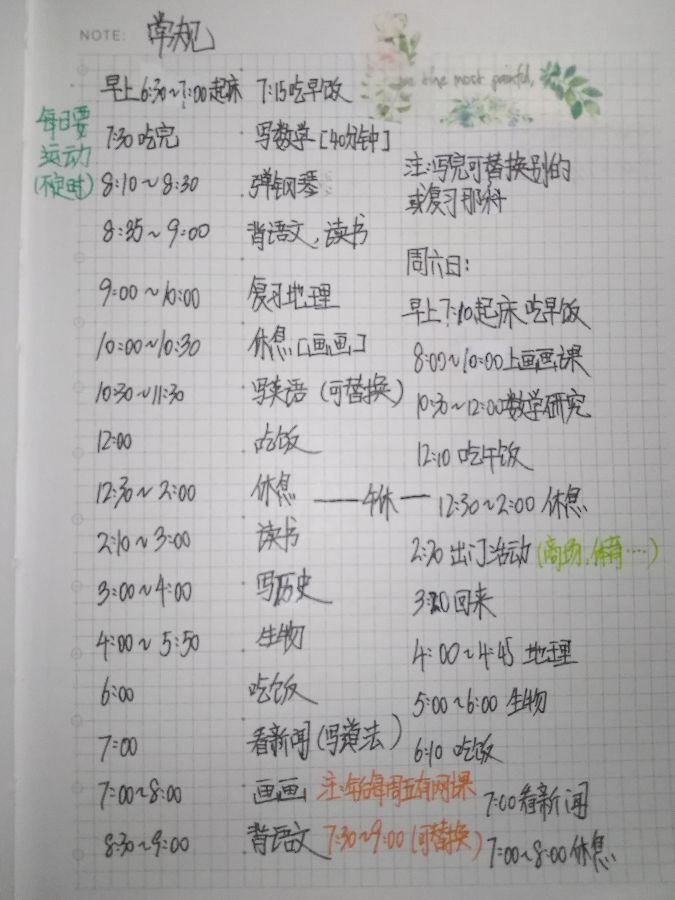 NOTE: 常规
早上6:30~7:00起床 7:15吃早饭
每日要
运动
(不定时)
7:30吃完 写数学[40分钟]
8:10~8:30 弹钢琴
8:35~9:00 背语文、读书
9:00~10:00 复习地理
10:00~10:30 休息[画画]
10:30~11:30 写英语(可替换)
12:00 吃饭
12:30~2:00 休息 ——午休—
2:10~3:00 读书
3:00~4:00 写历史
4:00~5:50 生物
6:00 吃饭
7:00 看新闻(写道法)
7:00~8:00 画画
8:30~9:00 背语文
注:每周五有网课
7:30~9:00(可替换)
the most painful,
注:写完可替换别的
或复习那科
周六日:
早上7:10起床吃早饭
8:00~10:00上画画课
10:30~12:00数学研究
12:10 吃午饭
12:30~2:00 休息
2:30 出门活动(商场、体育…)
3:30回来
4:00~4:45 地理
5:00~6:00 生物
6:10 吃饭
7:00看新闻
7:00~8:00休息